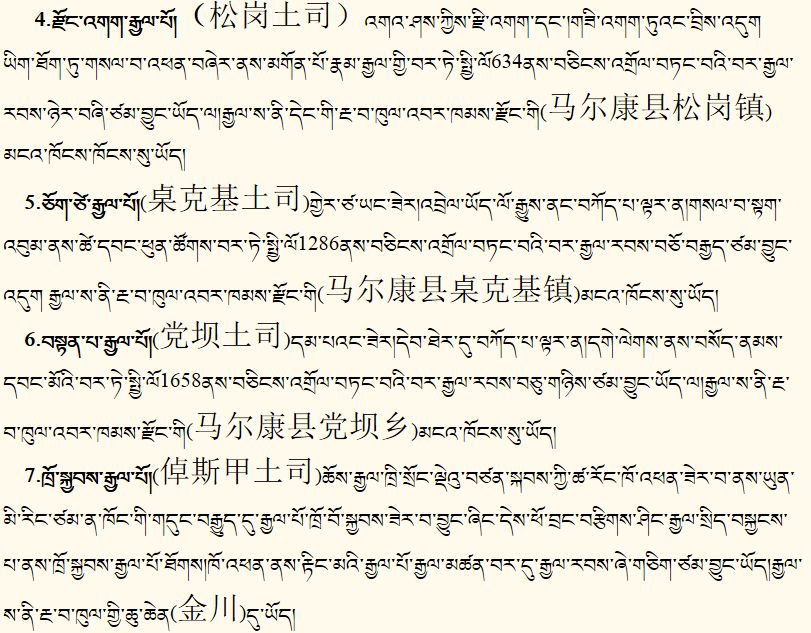 4.རྫོང་འགག་རྒྱལ་པོ།（松岗土司）འགའ་ཤས་ཀྱིས་རྫི་འགག་དང་།གཟི་འགག་ཏུའང་བྲིས་འདུག
ཡིག་ཐོག་ཏུ་གསལ་བ་འཕན་བཞེར་ནས་མགོན་པོ་རྣམ་རྒྱལ་གྱི་བར་ཏེ་སྤྱི་ལོ634ནས་བཅིངས་འགྲོལ་བཏང་བའི་བར་རྒྱལ་
རབས་ཉེར་བཞི་ཙམ་བྱུང་ཡོད་ལ།རྒྱལ་ས་ནི་དེང་གི་རྔ་བ་ཁུལ་འབར་ཁམས་རྫོང་གི(马尔康县松岗镇)
མངའ་ཁོངས་ཁོངས་སུ་ཡོད།
5.ཅོག་ཙེ་རྒྱལ་པོ།(桌克基土司)གྱེར་ཙ་ཡང་ཟེར།འབྲེལ་ཡོད་ལོ་རྒྱུས་ནང་བཀོད་པ་ལྟར་ན།གསལ་བ་སྟག་
འབུམ་ནས་ཚེ་དབང་ཕུན་ཚོགས་བར་ཏེ་སྤྱི་ལོ1286ནས་བཅིངས་འགྲོལ་བཏང་བའི་བར་རྒྱལ་རབས་བཅོ་བརྒྱད་ཙམ་བྱུང་
འདུག རྒྱལ་ས་ནི་རྔ་བ་ཁུལ་འབར་ཁམས་རྫོང་གི(马尔康县桌克基镇)མངའ་ཁོངས་སུ་ཡོད།
6.བསྟན་པ་རྒྱལ་པོ།(党坝土司)དམ་པའང་ཟེར།དེབ་ཐེར་དུ་བཀོད་པ་ལྟར་ན།དགེ་ལེགས་ནས་བསོད་ནམས་
དབང་མོའི་བར་ཏེ་སྤྱི་ལོ1658ནས་བཅིངས་འགྲོལ་བཏང་བའི་བར་རྒྱལ་རབས་བཅུ་གཉིས་ཙམ་བྱུང་ཡོད་ལ།རྒྱལ་ས་ནི་རྔ་
བ་ཁུལ་འབར་ཁམས་རྫོང་གི(马尔康县党坝乡)མངའ་ཁོངས་སུ་ཡོད།
7.ཁྲོ་སྐྱབས་རྒྱལ་པོ།(倬斯甲土司)ཆོས་རྒྱལ་ཁྲི་སྲོང་ལྡེའུ་བཙན་སྐབས་ཀྱི་ཚ་རོང་ཁོ་འཕན་ཟེར་བ་ནས་ཡུན་
མི་རིང་ཙམ་ན་ཁོང་གི་གདུང་བརྒྱུད་དུ་རྒྱལ་པོ་ཁྲོ་བོ་སྐྱབས་ཟེར་བ་བྱུང་ཞིང་དེས་ཕོ་བྲང་བརྩིགས་ཤིང་རྒྱལ་སྲིད་བསྐྱངས་
པ་ནས་ཁྲོ་སྐྱབས་རྒྱལ་པོ་ཐོགས།ཁོ་འཕན་ནས་རྟིང་མའི་རྒྱལ་པོ་རྒྱལ་མཚན་བར་དུ་རྒྱལ་རབས་ཞེ་གཅིག་ཙམ་བྱུང་ཡོད།རྒྱལ་
ས་ནི་རྔ་བ་ཁུལ་གྱི་ཆུ་ཆེན(金川)དུ་ཡོད།